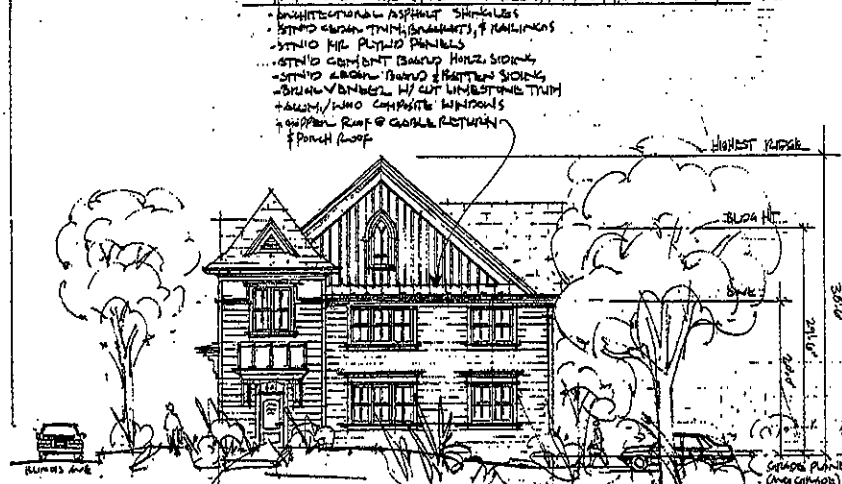 - ARCHITECTURAL ASPHALT SHINGLES
- STN'D CEDAR TRIM, BRACKETS, & RAILINGS
- STN'D FIR PLYWD PANELS
- STN'D CEMENT BOARD HORIZ. SIDING
- STN'D CEDAR BOARD & BATTEN SIDING
- BRICK VENEER W/ CUT LIMESTONE TRIM
- ALUM./WOOD COMPOSITE WINDOWS
- COPPER ROOF @ GABLE RETURN
& PORCH ROOF
HIGHEST RIDGE
BLDG HT.
EAVE
ILLINOIS AVE
GRADE PLANE
(AVG GRADE)